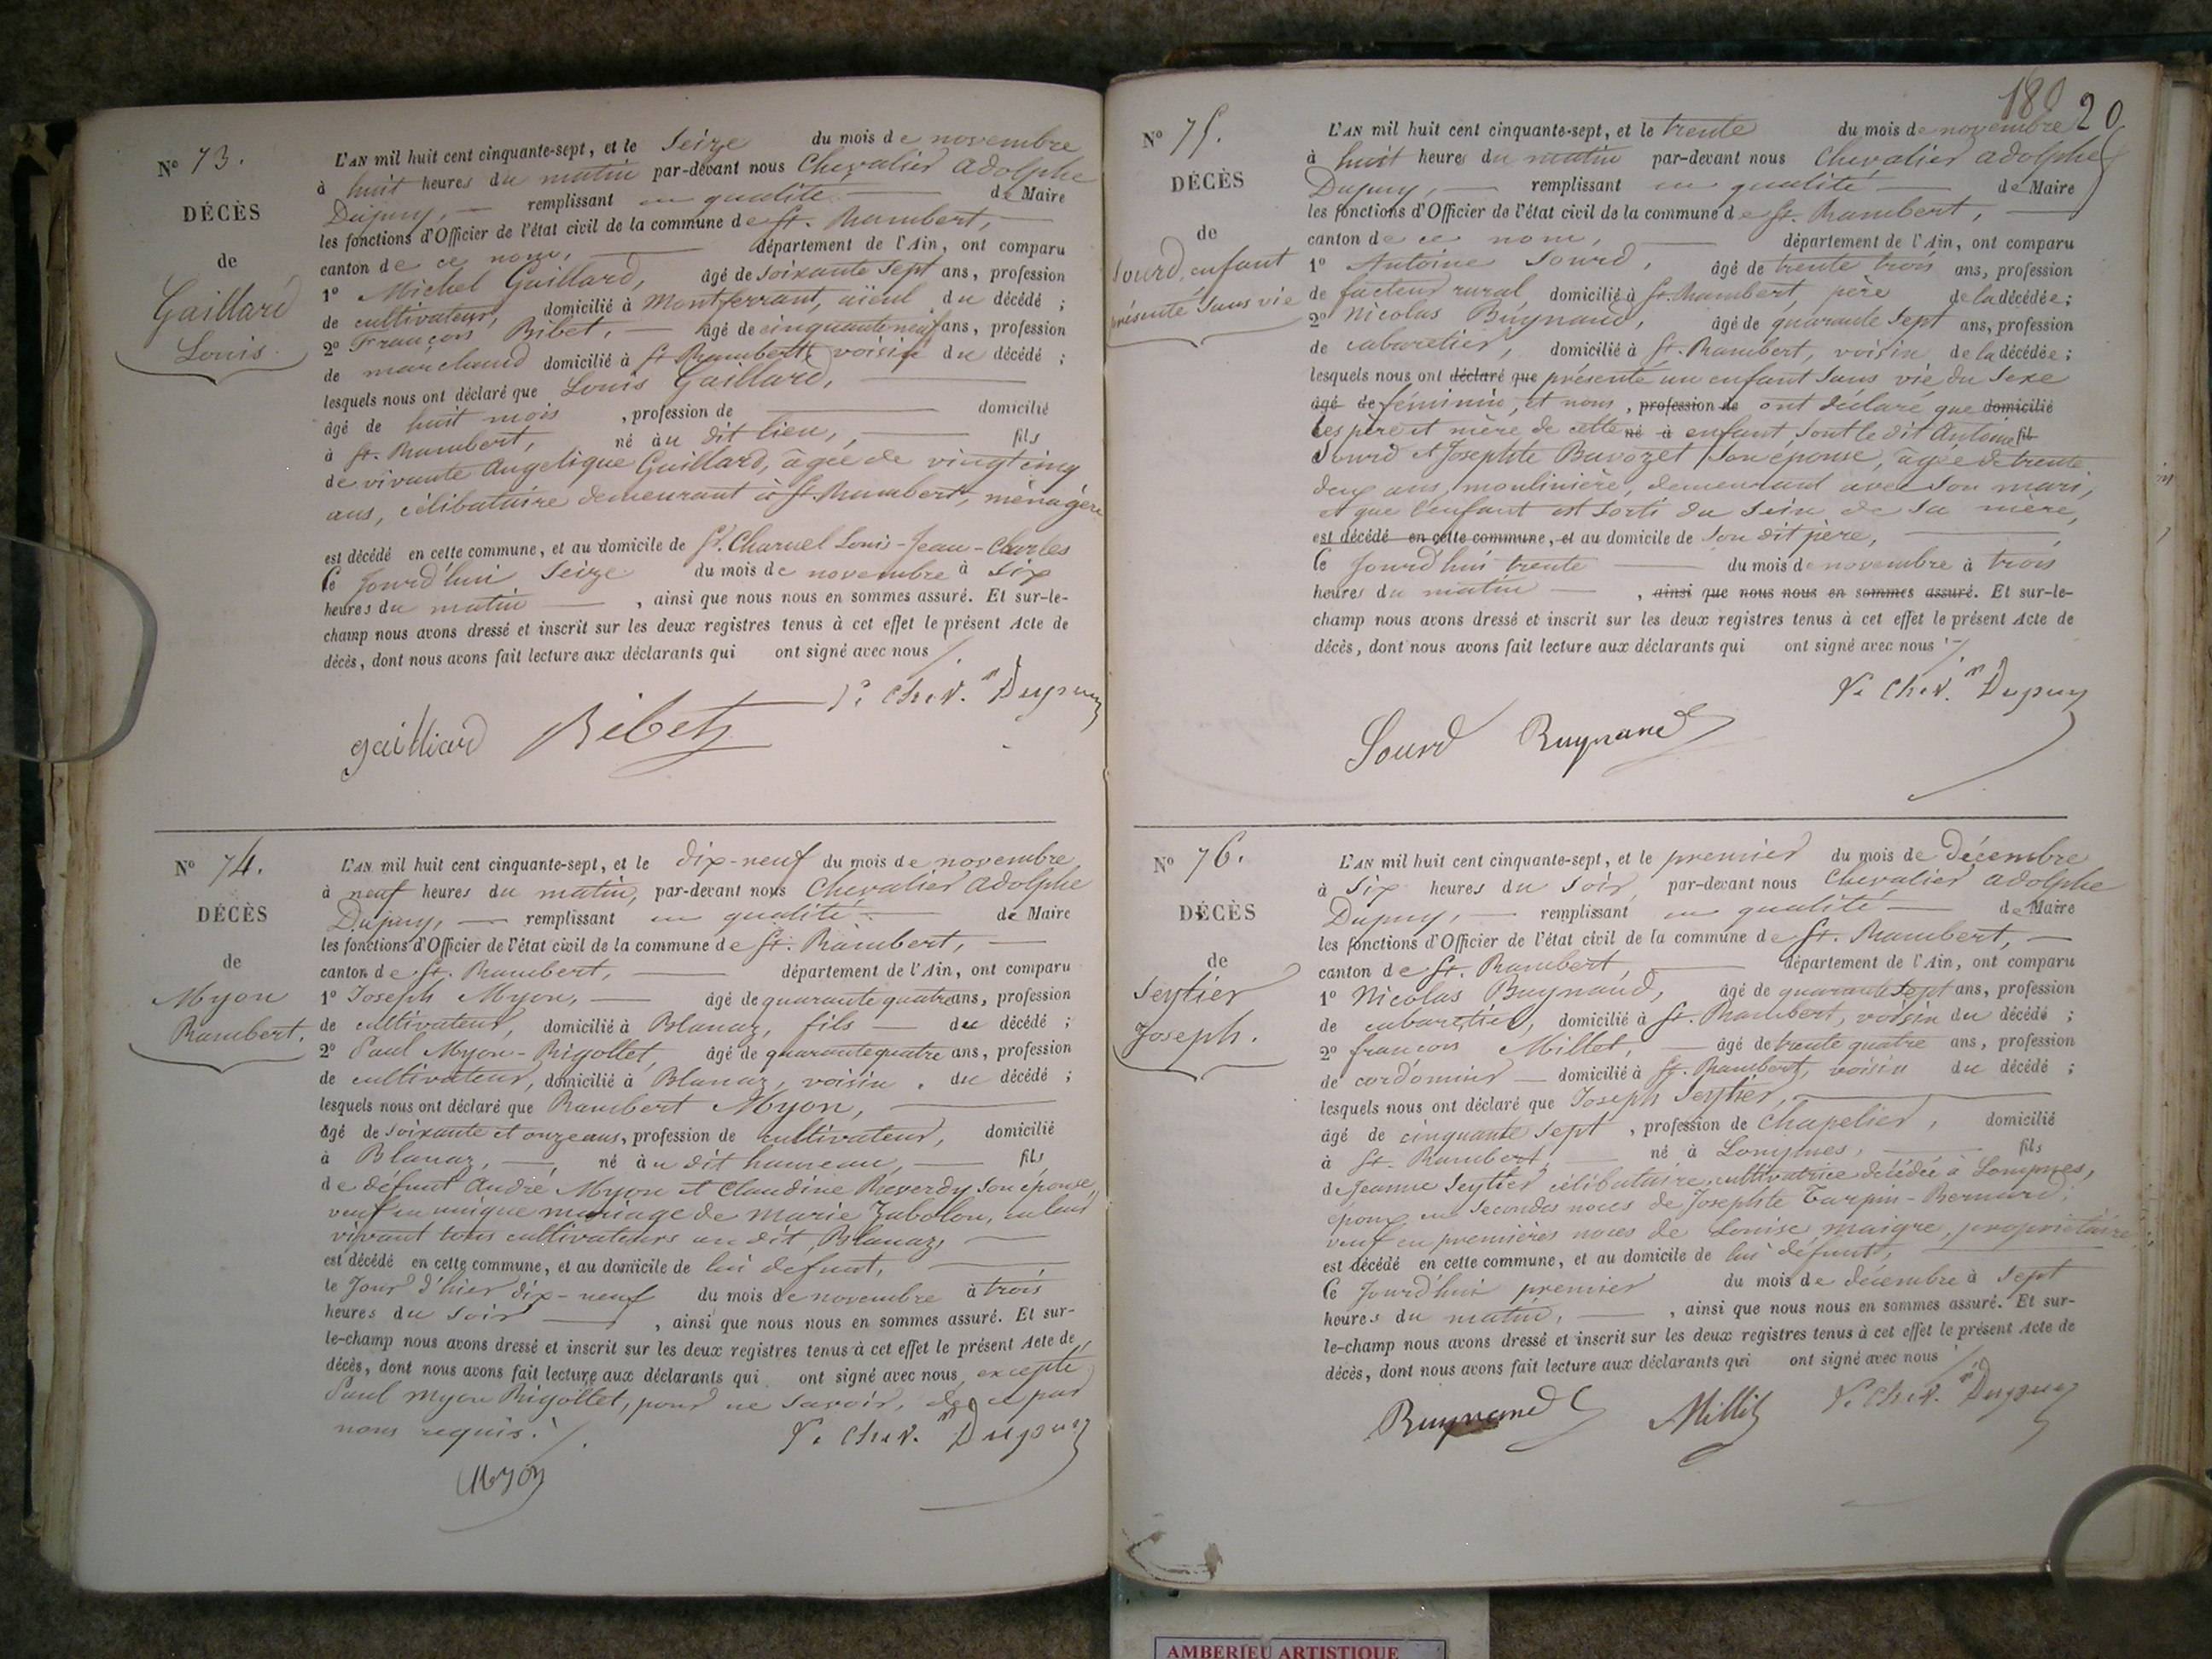 N° 73.
DÉCÈS
de
Gaillard
Louis.
L'AN mil huit cent cinquante-sept, et le Seize du mois de novembre
à huit heures du matin par-devant nous Chevalier Adolphe
Dupuy, remplissant en qualité de Maire
les fonctions d'Officier de l'état civil de la commune de St. Rambert,
canton de ce nom, département de l'Ain, ont comparu
1° Michel Gaillard, âgé de soixante sept ans, profession
de cultivateur, domicilié à Montferrant, aïeul du décédé ;
2° François Ribet, âgé de cinquante neuf ans, profession
de marchand domicilié à St. Rambert, voisin du décédé ;
lesquels nous ont déclaré que Louis Gaillard,
âgé de huit mois , profession de domicilié
à St. Rambert, né au dit lieu, fils
de vivante Angelique Gaillard, âgée de vingt cinq
ans, célibataire demeurant à St. Rambert, ménagère
est décédé en cette commune, et au domicile de Sr. Charvel Louis-Jean-Charles
Ce Jourd'hui Seize du mois de novembre à six
heures du matin , ainsi que nous nous en sommes assuré. Et sur-le-
champ nous avons dressé et inscrit sur les deux registres tenus à cet effet le présent Acte de
décès, dont nous avons fait lecture aux déclarants qui ont signé avec nous
gailliard Ribet Chev. Dupuy
N° 74.
DÉCÈS
de
Myon
Rambert.
L'AN mil huit cent cinquante-sept, et le dix-neuf du mois de novembre
à neuf heures du matin, par-devant nous Chevalier Adolphe
Dupuy, remplissant en qualité de Maire
les fonctions d'Officier de l'état civil de la commune de St. Rambert,
canton de St. Rambert, département de l'Ain, ont comparu
1° Joseph Myon, âgé de quarante quatre ans, profession
de cultivateur, domicilié à Blanaz, fils du décédé ;
2° Paul Myon-Rigollet, âgé de quarante quatre ans, profession
de cultivateur, domicilié à Blanaz, voisin, du décédé ;
lesquels nous ont déclaré que Rambert Myon,
âgé de soixante et onze ans, profession de cultivateur, domicilié
à Blanaz, né au dit hameau, fils
de défunt André Myon et Claudine Reverdy son épouse,
veuf en unique mariage de Marie Jabolon, en leur
vivant tous cultivateurs au dit Blanaz,
est décédé en cette commune, et au domicile de lui défunt,
le Jour d'hier dix-neuf du mois de novembre à trois
heures du soir , ainsi que nous nous en sommes assuré. Et sur-
le-champ nous avons dressé et inscrit sur les deux registres tenus à cet effet le présent Acte de
décès, dont nous avons fait lecture aux déclarants qui ont signé avec nous, excepté
Paul Myon Rigollet, pour ne savoir, de ce par
nous requis.
Chev. Dupuy
Myon
180 20
N° 75.
DÉCÈS
de
Sourd, enfant
présenté sans vie
L'AN mil huit cent cinquante-sept, et le trente du mois de novembre
à huit heures du matin par-devant nous Chevalier Adolphe
Dupuy, remplissant en qualité de Maire
les fonctions d'Officier de l'état civil de la commune de St. Rambert,
canton de ce nom, département de l'Ain, ont comparu
1° Antoine Sourd, âgé de trente trois ans, profession
de facteur rural domicilié à St. Rambert, père de la décédée ;
2° Nicolas Buynand, âgé de quarante sept ans, profession
de cabaretier, domicilié à St. Rambert, voisin de la décédée ;
lesquels nous ont déclaré que présenté un enfant sans vie du sexe
âgé de féminin, et nous , profession de ont déclaré que domicilié
les père et mère de cette né à enfant, sont le dit Antoine fil
Sourd et Josephte Bavozet son épouse, âgée de trente
deux ans, moulinière, demeurant avec son mari,
et que l'enfant est sorti du sein de sa mère,
est décédé en cette commune, et au domicile de son dit père,
Ce Jourd'hui trente du mois de novembre à trois
heures du matin , ainsi que nous nous en sommes assuré. Et sur-le-
champ nous avons dressé et inscrit sur les deux registres tenus à cet effet le présent Acte de
décès, dont nous avons fait lecture aux déclarants qui ont signé avec nous
Chev. Dupuy
Sourd Buynand
N° 76.
DÉCÈS
de
Seytier
Joseph.
L'AN mil huit cent cinquante-sept, et le premier du mois de Décembre
à Six heures du Soir par-devant nous Chevalier Adolphe
Dupuy, remplissant en qualité de Maire
les fonctions d'Officier de l'état civil de la commune de St. Rambert,
canton de St. Rambert, département de l'Ain, ont comparu
1° Nicolas Buynand, âgé de quarante sept ans, profession
de cabaretier, domicilié à St. Rambert, voisin du décédé ;
2° françois Millet, âgé de trente quatre ans, profession
de cordonnier domicilié à St. Rambert, voisin du décédé ;
lesquels nous ont déclaré que Joseph Seytier,
âgé de cinquante sept , profession de Chapelier, domicilié
à St. Rambert, né à Lompnes, fils
de Jeanne Seytier célibataire, cultivatrice décédée à Lompnes,
époux en secondes noces de Josephte Tarpin-Bernard,
veuf en premières noces de Louise Maigre, propriétaire
est décédé en cette commune, et au domicile de lui défunt,
Ce Jourd'hui premier du mois de décembre à sept
heures du matin, , ainsi que nous nous en sommes assuré. Et sur-
le-champ nous avons dressé et inscrit sur les deux registres tenus à cet effet le présent Acte de
décès, dont nous avons fait lecture aux déclarants qui ont signé avec nous
Buynand Millet Chev. Dupuy
AMBERIEU ARTISTIQUE